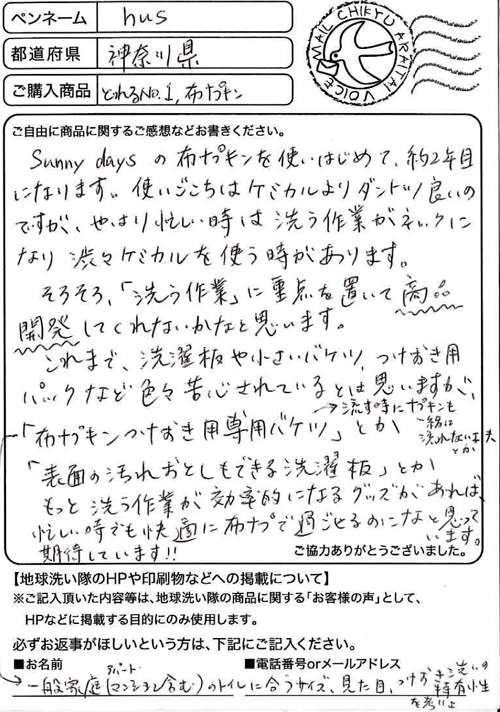 ペンネーム hus
都道府県 神奈川県
ご購入商品 とれるNo.1, 布ナプキン
MAIL CHIKYU ARAITAI VOICE
ご自由に商品に関するご感想などお書きください。
Sunny days の布ナプキンを使いはじめて、約2年目
になります。使いごこちはケミカルよりダントツ良いの
ですが、やはり忙しい時は洗う作業がネックに
なり渋々ケミカルを使う時があります。
そろそろ、「洗う作業」に重点を置いて商品
開発してくれないかなと思います。
これまで、洗濯板や小さいバケツ、つけおき用
パックなど色々苦心されているとは思いますが、
→流す時にナプキンも
一緒に
流れない工夫
とか
「布ナプキンつけおき用専用バケツ」とか
「表面の汚れおとしもできる洗濯板」とか
もっと洗う作業が効率的になるグッズがあれば、
忙しい時でも快適に布ナプで過ごせるのになと思って
います。
期待しています!!
ご協力ありがとうございました。
【地球洗い隊のHPや印刷物などへの掲載について】
※ご記入頂いた内容等は、地球洗い隊の商品に関する「お客様の声」として、
HPなどに掲載する目的にのみ使用します。
必ずお返事がほしいという方は、下記にご記入ください。
■お名前 ■電話番号orメールアドレス
アパート
→一般家庭(マンション含む)のトイレに合うサイズ、見た目、つけおき洗いの
特有性
を考慮